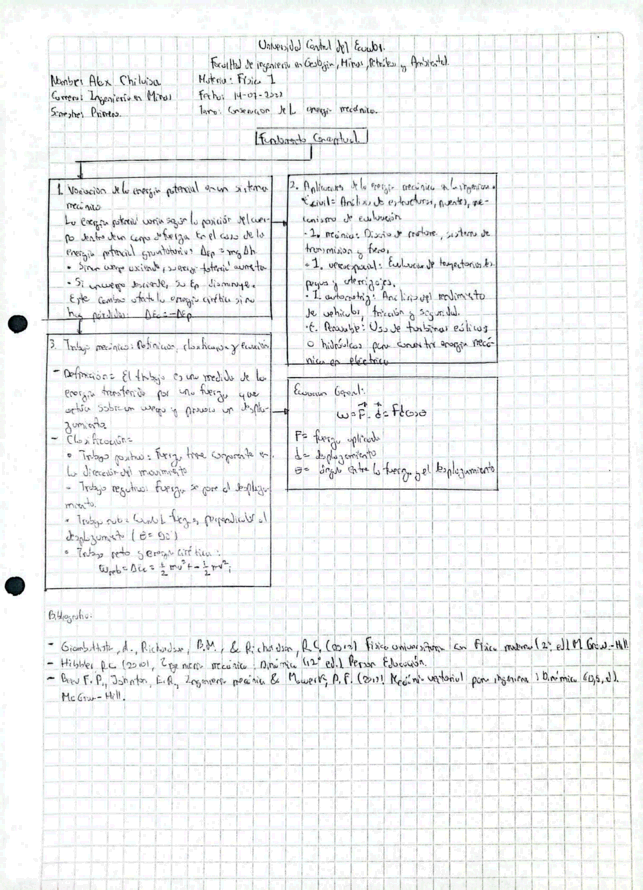 Universidad Central del Ecuador
Facultad de ingeniería en Geología, Minas, Petróleo y Ambiental.
Nombre: Alex Chiluisa Materia: Física 1
Carrera: Ingeniería en Minas Fecha: 14-07-
Semestre: Primero. Tema: Conservación de la energía mecánica.
Fundamento Conceptual
1. Variación de la energía potencial en un sistema
mecánico
La energía potencial varía según la posición del cuer-
po dentro de un campo de fuerza. En el caso de la
energía potencial gravitatoria: ΔEp = mgΔh
• Si un cuerpo asciende, su energía potencial aumenta
• Si un cuerpo desciende, su Ep disminuye.
Este cambio afecta la energía cinética si no
hay pérdidas: ΔEc = -ΔEp
2. Aplicaciones de la energía mecánica en la ingeniería
civil = Análisis de estructuras, puentes, me-
canismo de evaluación
- I. mecánica: Diseño de motores, sistema de
transmisión y frenos.
• I. aeroespacial: Evaluación de trayectorias de
y aterrizajes.
• I. automotriz: Análisis del rendimiento
de vehículos, fricción y seguridad.
• E. Renovable: Uso de turbinas eólicas
o hidráulicas para convertir energía mecá-
nica en eléctrica
3. Trabajo mecánico: Definición, clasificación y ecuación
- Definición = El trabajo es una medida de la
energía transferida por una fuerza que
actúa sobre un cuerpo y provoca un despla-
zamiento
- Clasificación =
• Trabajo positivo: Fuerza tiene componente en
la dirección del movimiento
- Trabajo negativo: Fuerza se opone al desplaza-
miento.
• Trabajo nulo: Cuando la fuerza perpendicular al
desplazamiento (θ = 90°)
• Trabajo neto y energía cinética:
ΔEc = ½ mv²f - ½ mv²i
Ecuación General:
W = F · d = Fd cosθ
F = fuerza aplicada
d = desplazamiento
θ = ángulo entre la fuerza y el desplazamiento
Bibliografía:
- Giambattista, A., Richardson, B.M., & Richardson, R.C. Física universitaria con Física moderna (2° ed.) McGraw-Hill
- Hibbeler R.C (2010), Ingeniería mecánica: Dinámica (12° ed.) Pearson Educación.
- Beer F. P., Johnston, E.R., Ingeniería mecánica & P. F. Mecánica vectorial para ingenieros: Dinámica
McGraw-Hill.